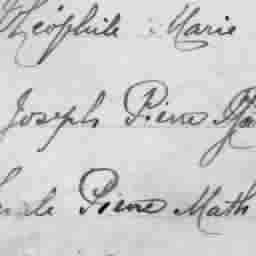 Théophile Marie
Joseph Pierre
Pierre Math